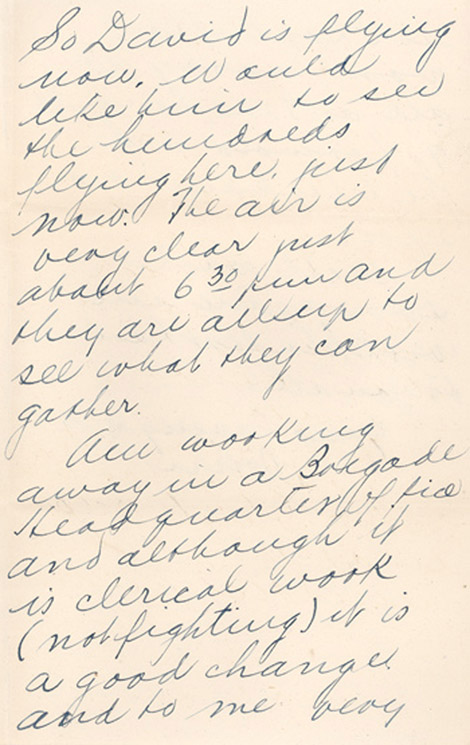 So David is flying
now. Would
like him to see
the hundreds
flying here, just
now. The air is
very clear just
about 6³⁰ pm and
they are all up to
see what they can
gather.
Am working
away in a Brigade
Headquarters Office
and although it
is clerical work
(not fighting) it is
a good change
and to me very